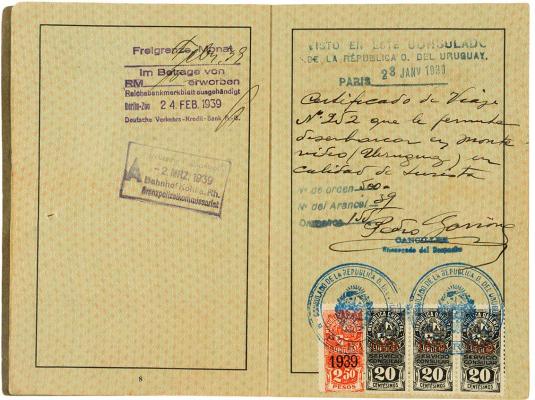 Freigrenze Monat
Febr. 39
Im Betrage von
RM erworben
Reichsbankmerkblatt ausgehändigt
Berlin-Zoo 24. FEB. 1939
Deutsche Verkehrs-Kredit-Bank A.G.
A
- 2. MRZ. 1939
Bahnhof Köln a. Rh.
Grenzpolizeikommissariat
8
VISTO EN ESTE CONSULADO
DE LA REPÚBLICA O. DEL URUGUAY.
PARIS 23 JANV 1939
Certificado de Viaje
Nº 252 que le permite
desembarcar en Monte-
video (Uruguay) en
calidad de turista
Nº de orden 500
Nº del Arancel 39
Pedro
CANCILLER
Encargado del Despacho
CONSULADO DE LA REPUBLICA O. DEL
CONSULADO DE LA REPUBLICA O. DEL U
1939
2.50
PESOS
SERVICIO CONSULAR
20
CENTÉSIMOS
SERVICIO CONSULAR
20
CENTÉSIMOS
SERVICIO CONSULAR
20
CENTÉSIMOS